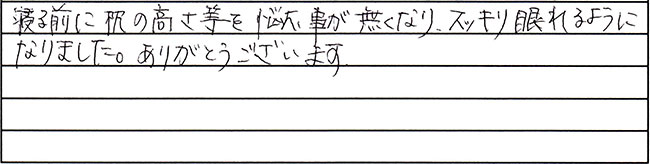 寝る前に枕の高さ等を悩む事が無くなり、スッキリ眠れるように
なりました。ありがとうございます